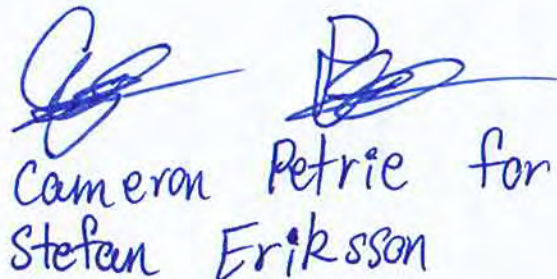 Cameron Petrie for
Stefan Eriksson